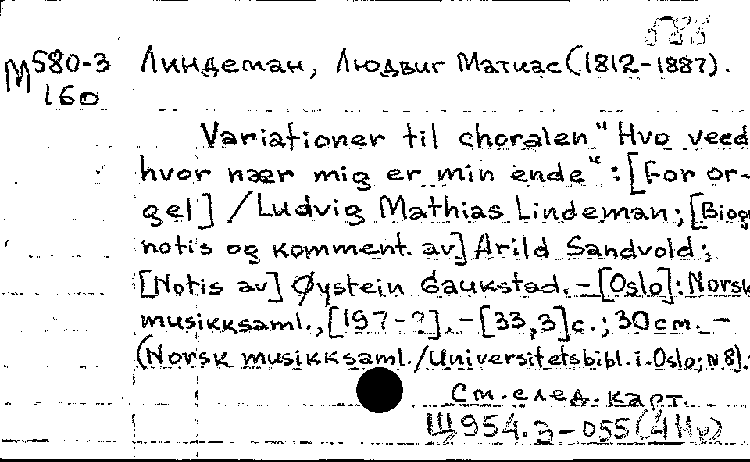 585
М 580-3 Линдеман, Людвиг Матиас (1812-1887).
160
Variationer til choralen "Hvo veed
hvor nær mig er min ende": [For or-
gel] / Ludvig Mathias Lindeman; [Biogr
notis og komment. av] Arild Sandvold;
[Notis av] Øystein Gaukstad. - [Oslo]: Norsk
musikksaml., [197-?]. - [33,3]с.; 30см. -
(Norsk musikksaml./Universitetsbibl. i Oslo; N8).
См. след. карт.
Щ954.3-055(4Нв)